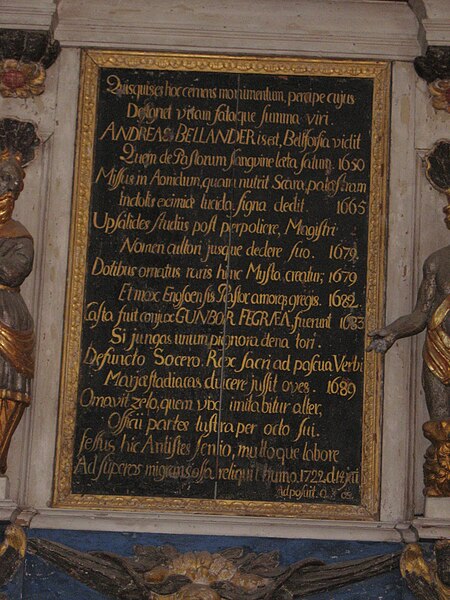 Quisquis es hoc cernens monumentum, percipe cujus
Designet vitam fataque summa viri.
ANDREAS BELLANDER is est, Bellforsia vidit
Quem de Pastorum sanguine læta satum. 1650
Missum in Aonidum, quam nutrit Scara, palæstram
Indolis eximiæ lucida signa dedit. 1665
Upsalides studiis post perpoliere, Magistri
Nomen cultori jusque dedere suo. 1679.
Dotibus ornatus raris hinc Mysta creatur, 1679
Et mox Engsoensis Pastor amorq; gregis. 1682.
Casta fuit conjux GUNBOR FEGRÆA, fuerunt 1683
Si jungas unum pignora dena tori.
Defuncto Socero, Rex sacri ad pascua Verbi
Mariæstadiacas ducere jussit oves. 1689
Ornavit zelo, quem vix imitabitur alter,
Officii partes lustra per octo sui.
fessus hic Antistes senio, multoque labore
Ad superos migrans ossa reliquit humo. 1722. d.